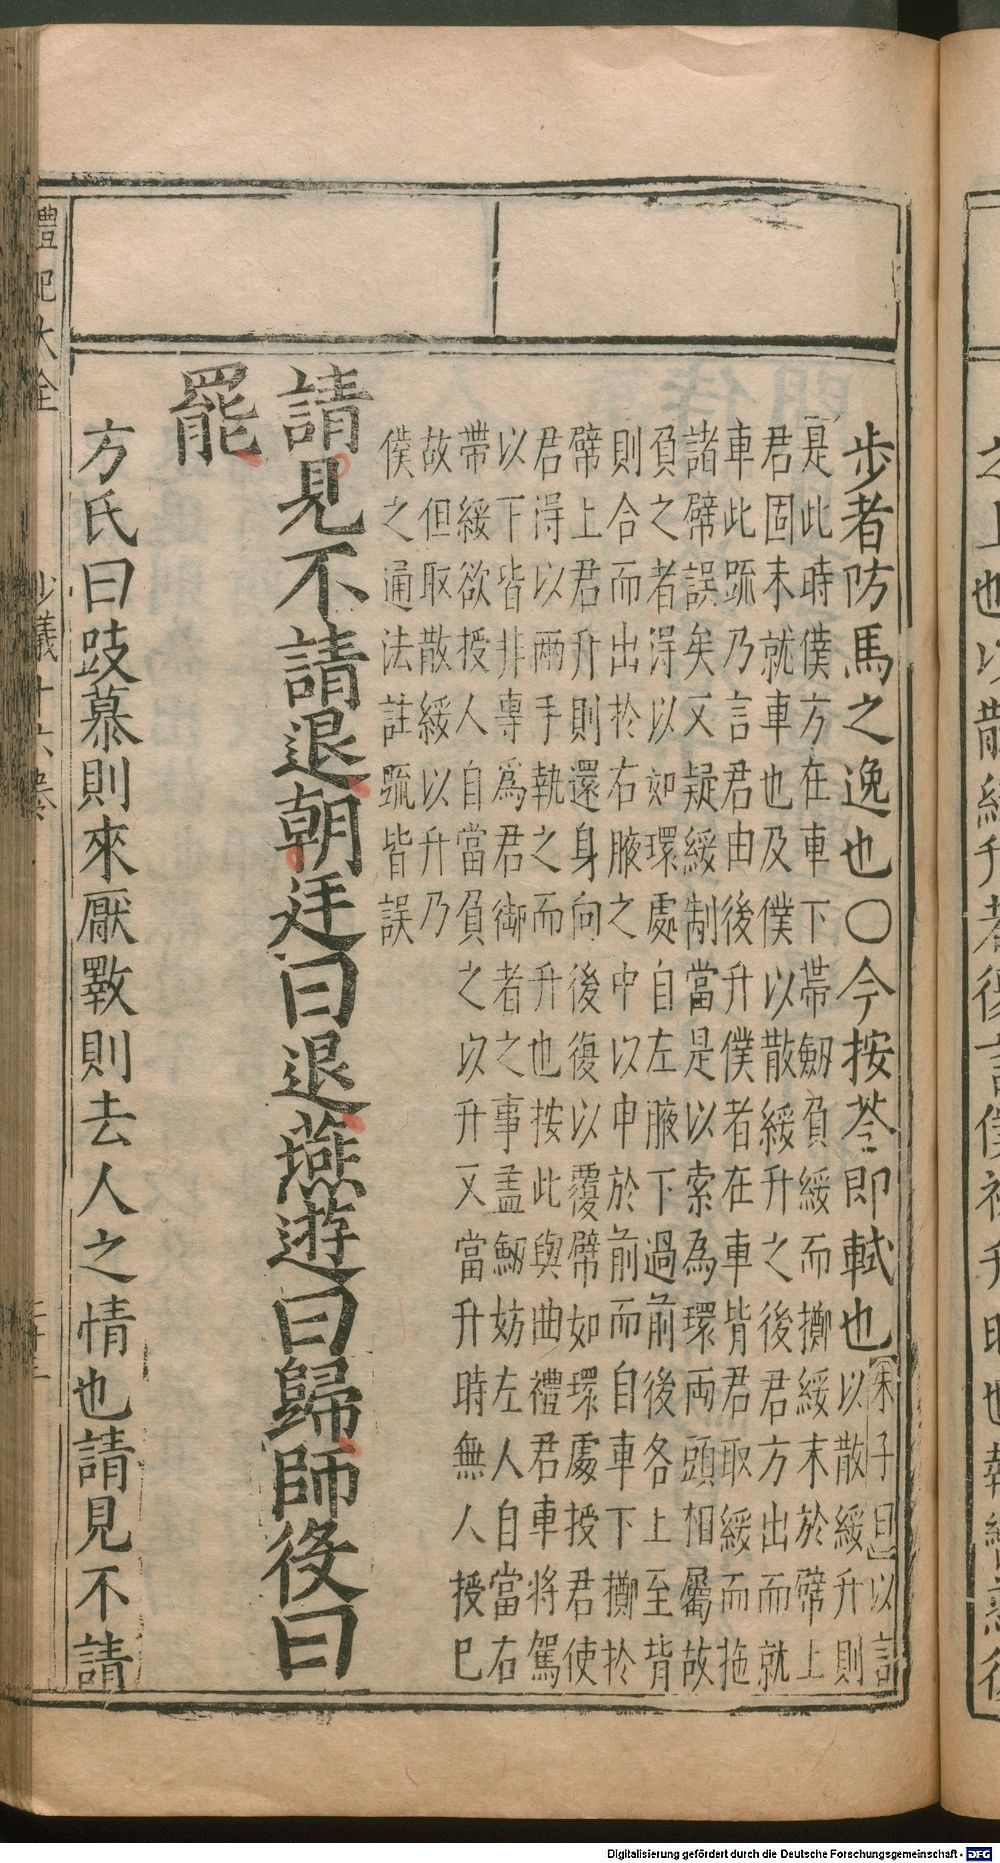 步者防馬之逸也○今按苓即軾也
朱子曰以註
以散綏升則
是此時僕方在車下帶劒負綏而擲綏末於幦上
君固未就車也及僕以散綏升之後君方出而就
車此䟽乃言君由後升僕者在車背君取綏而拖
諸幦誤矣又疑綏制當是以索為環兩頭相屬故
負之者淂以如環處自左腋下過前後各上至背
則合而出於右腋之中以申於前而自車下擲於
幦上君升則還身向後復以覆幦如環處授君使
君淂以兩手執之而升也按此與曲禮君車将駕
以下皆非專為君御者之事盖劒妨左人自當右
帶綏欲授人自當負之以升又當升時無人授巳
故但取散綏以升乃
僕之通法註䟽皆誤
請見不請退朝廷曰退燕遊曰歸師役曰
罷
方氏曰跂慕則來厭斁則去人之情也請見不請
禮記大全 少儀十六卷
Digitalisierung gefördert durch die Deutsche Forschungsgemeinschaft - DFG